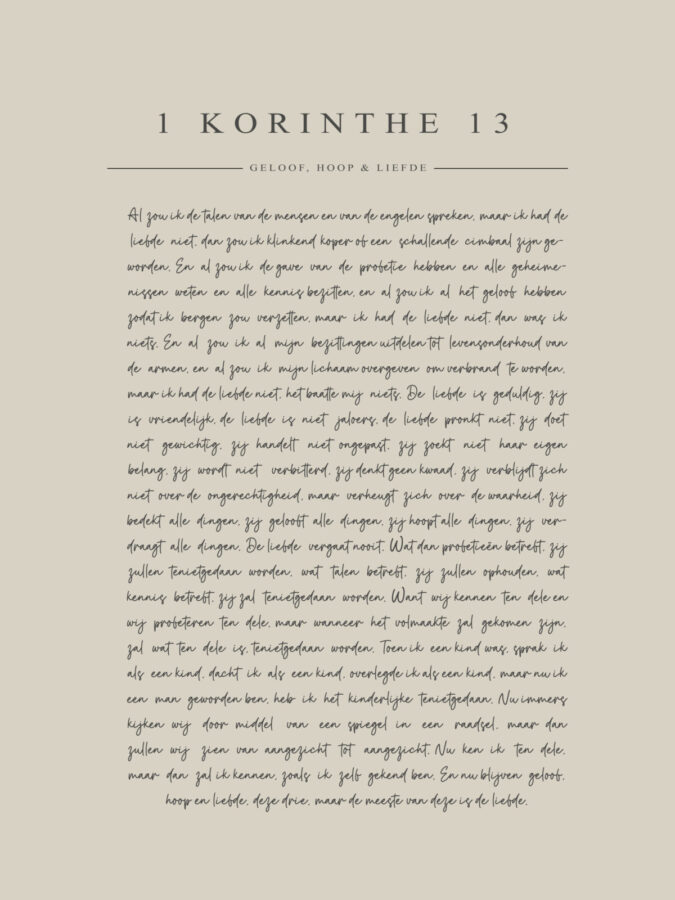 1 KORINTHE 13
GELOOF, HOOP & LIEFDE
Al zou ik de talen van de mensen en van de engelen spreken, maar ik had de
liefde niet, dan zou ik klinkend koper of een schallende cimbaal zijn ge-
worden. En al zou ik de gave van de profetie hebben en alle geheime-
nissen weten en alle kennis bezitten, en al zou ik al het geloof hebben
zodat ik bergen zou verzetten, maar ik had de liefde niet, dan was ik
niets. En al zou ik al mijn bezittingen uitdelen tot levensonderhoud van
de armen, en al zou ik mijn lichaam overgeven om verbrand te worden,
maar ik had de liefde niet, het baatte mij niets. De liefde is geduldig, zij
is vriendelijk, de liefde is niet jaloers, de liefde pronkt niet, zij doet
niet gewichtig, zij handelt niet ongepast, zij zoekt niet haar eigen
belang, zij wordt niet verbitterd, zij denkt geen kwaad, zij verblijdt zich
niet over de ongerechtigheid, maar verheugt zich over de waarheid, zij
bedekt alle dingen, zij gelooft alle dingen, zij hoopt alle dingen, zij ver-
draagt alle dingen. De liefde vergaat nooit. Wat dan profetieën betreft, zij
zullen tenietgedaan worden, wat talen betreft, zij zullen ophouden, wat
kennis betreft, zij zal tenietgedaan worden. Want wij kennen ten dele en
wij profeteren ten dele, maar wanneer het volmaakte zal gekomen zijn,
zal wat ten dele is, tenietgedaan worden. Toen ik een kind was, sprak ik
als een kind, dacht ik als een kind, overlegde ik als een kind, maar nu ik
een man geworden ben, heb ik het kinderlijke tenietgedaan. Nu immers
kijken wij door middel van een spiegel in een raadsel, maar dan
zullen wij zien van aangezicht tot aangezicht. Nu ken ik ten dele,
maar dan zal ik kennen, zoals ik zelf gekend ben. En nu blijven geloof,
hoop en liefde, deze drie, maar de meeste van deze is de liefde.